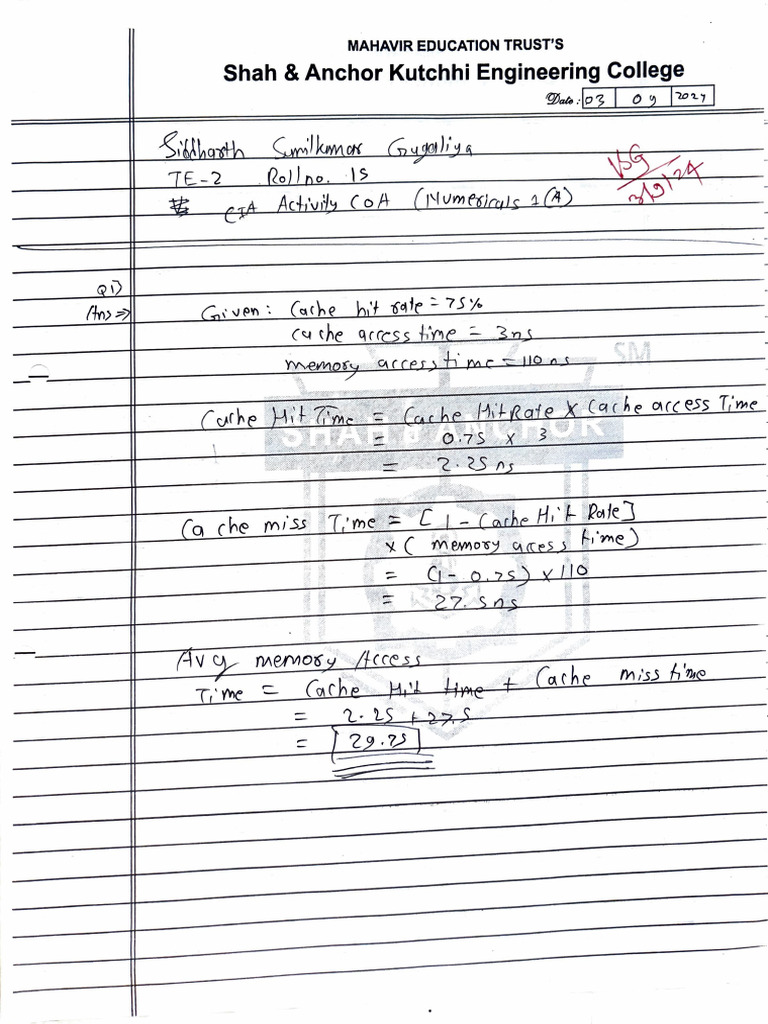 MAHAVIR EDUCATION TRUST'S
Shah & Anchor Kutchhi Engineering College
Date: 03 09 2024
Siddharth Sunilkumar Gugaliya
TE-2 Roll no. 15
CIA Activity COA (Numericals 1(A)
VSG
3/9/24
Q1)
Ans ⇒ Given: Cache hit rate = 75%
cache access time = 3ns
memory access time = 110 ns
SM
Cache Hit Time = Cache Hit Rate × Cache access Time
SHAH & ANCHOR
= 0.75 × 3
= 2.25 ns
Cache miss Time = [1 - Cache Hit Rate]
×( memory access time)
= (1 - 0.75) × 110
= 27.5ns
Avg memory Access
Time = Cache Hit time + Cache miss time
= 2.25 + 27.5
= 29.75